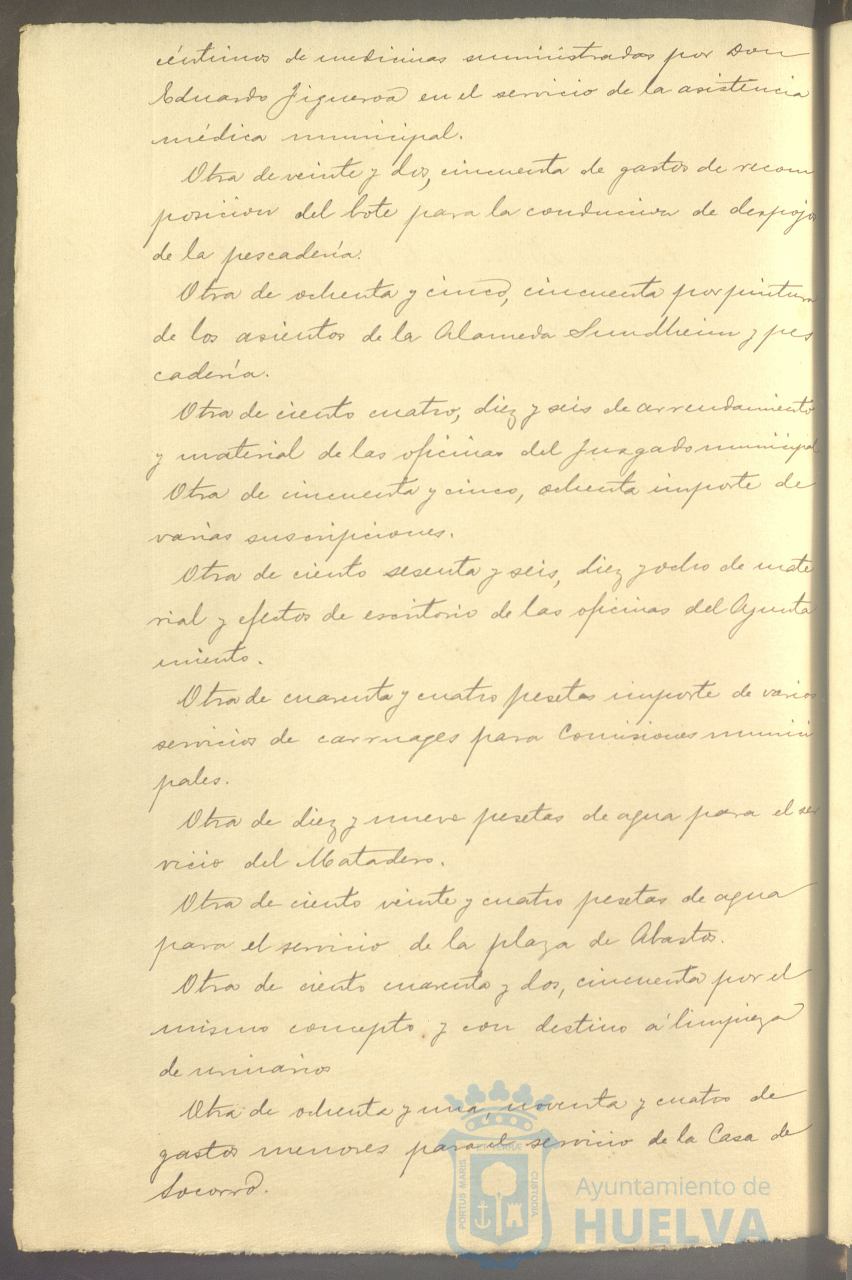 céntimos de medicinas suministradas por Don
Eduardo Figueroa en el servicio de la asistencia
médica municipal.
Otra de veinte y dos, cincuenta de gastos de recom
posicion del bote para la conduccion de despojos
de la pescadería.
Otra de ochenta y cinco, cincuenta por pintura
de los asientos de la Alameda Sundheim y pes
cadería.
Otra de ciento cuatro, diez y seis de arrendamiento
y material de las oficinas del Juzgado municipal
Otra de cincuenta y cinco, ochenta importe de
varias suscripciones.
Otra de ciento sesenta y seis, diez y ocho de mate
rial y efectos de escritorio de las oficinas del Ayunta
miento.
Otra de cuarenta y cuatro pesetas importe de varios
servicios de carruages para Comisiones munici
pales.
Otra de diez y nueve pesetas de agua para el ser
vicio del Matadero.
Otra de ciento veinte y cuatro pesetas de agua
para el servicio de la plaza de Abastos.
Otra de ciento cuarenta y dos, cincuenta por el
mismo concepto y con destino á limpieza
de urinarios
Otra de ochenta y una, noventa y cuatro de
gastos menores para el servicio de la Casa de
Socorro.
PORTUS MARIS
CUSTODIA
Ayuntamiento de
HUELVA